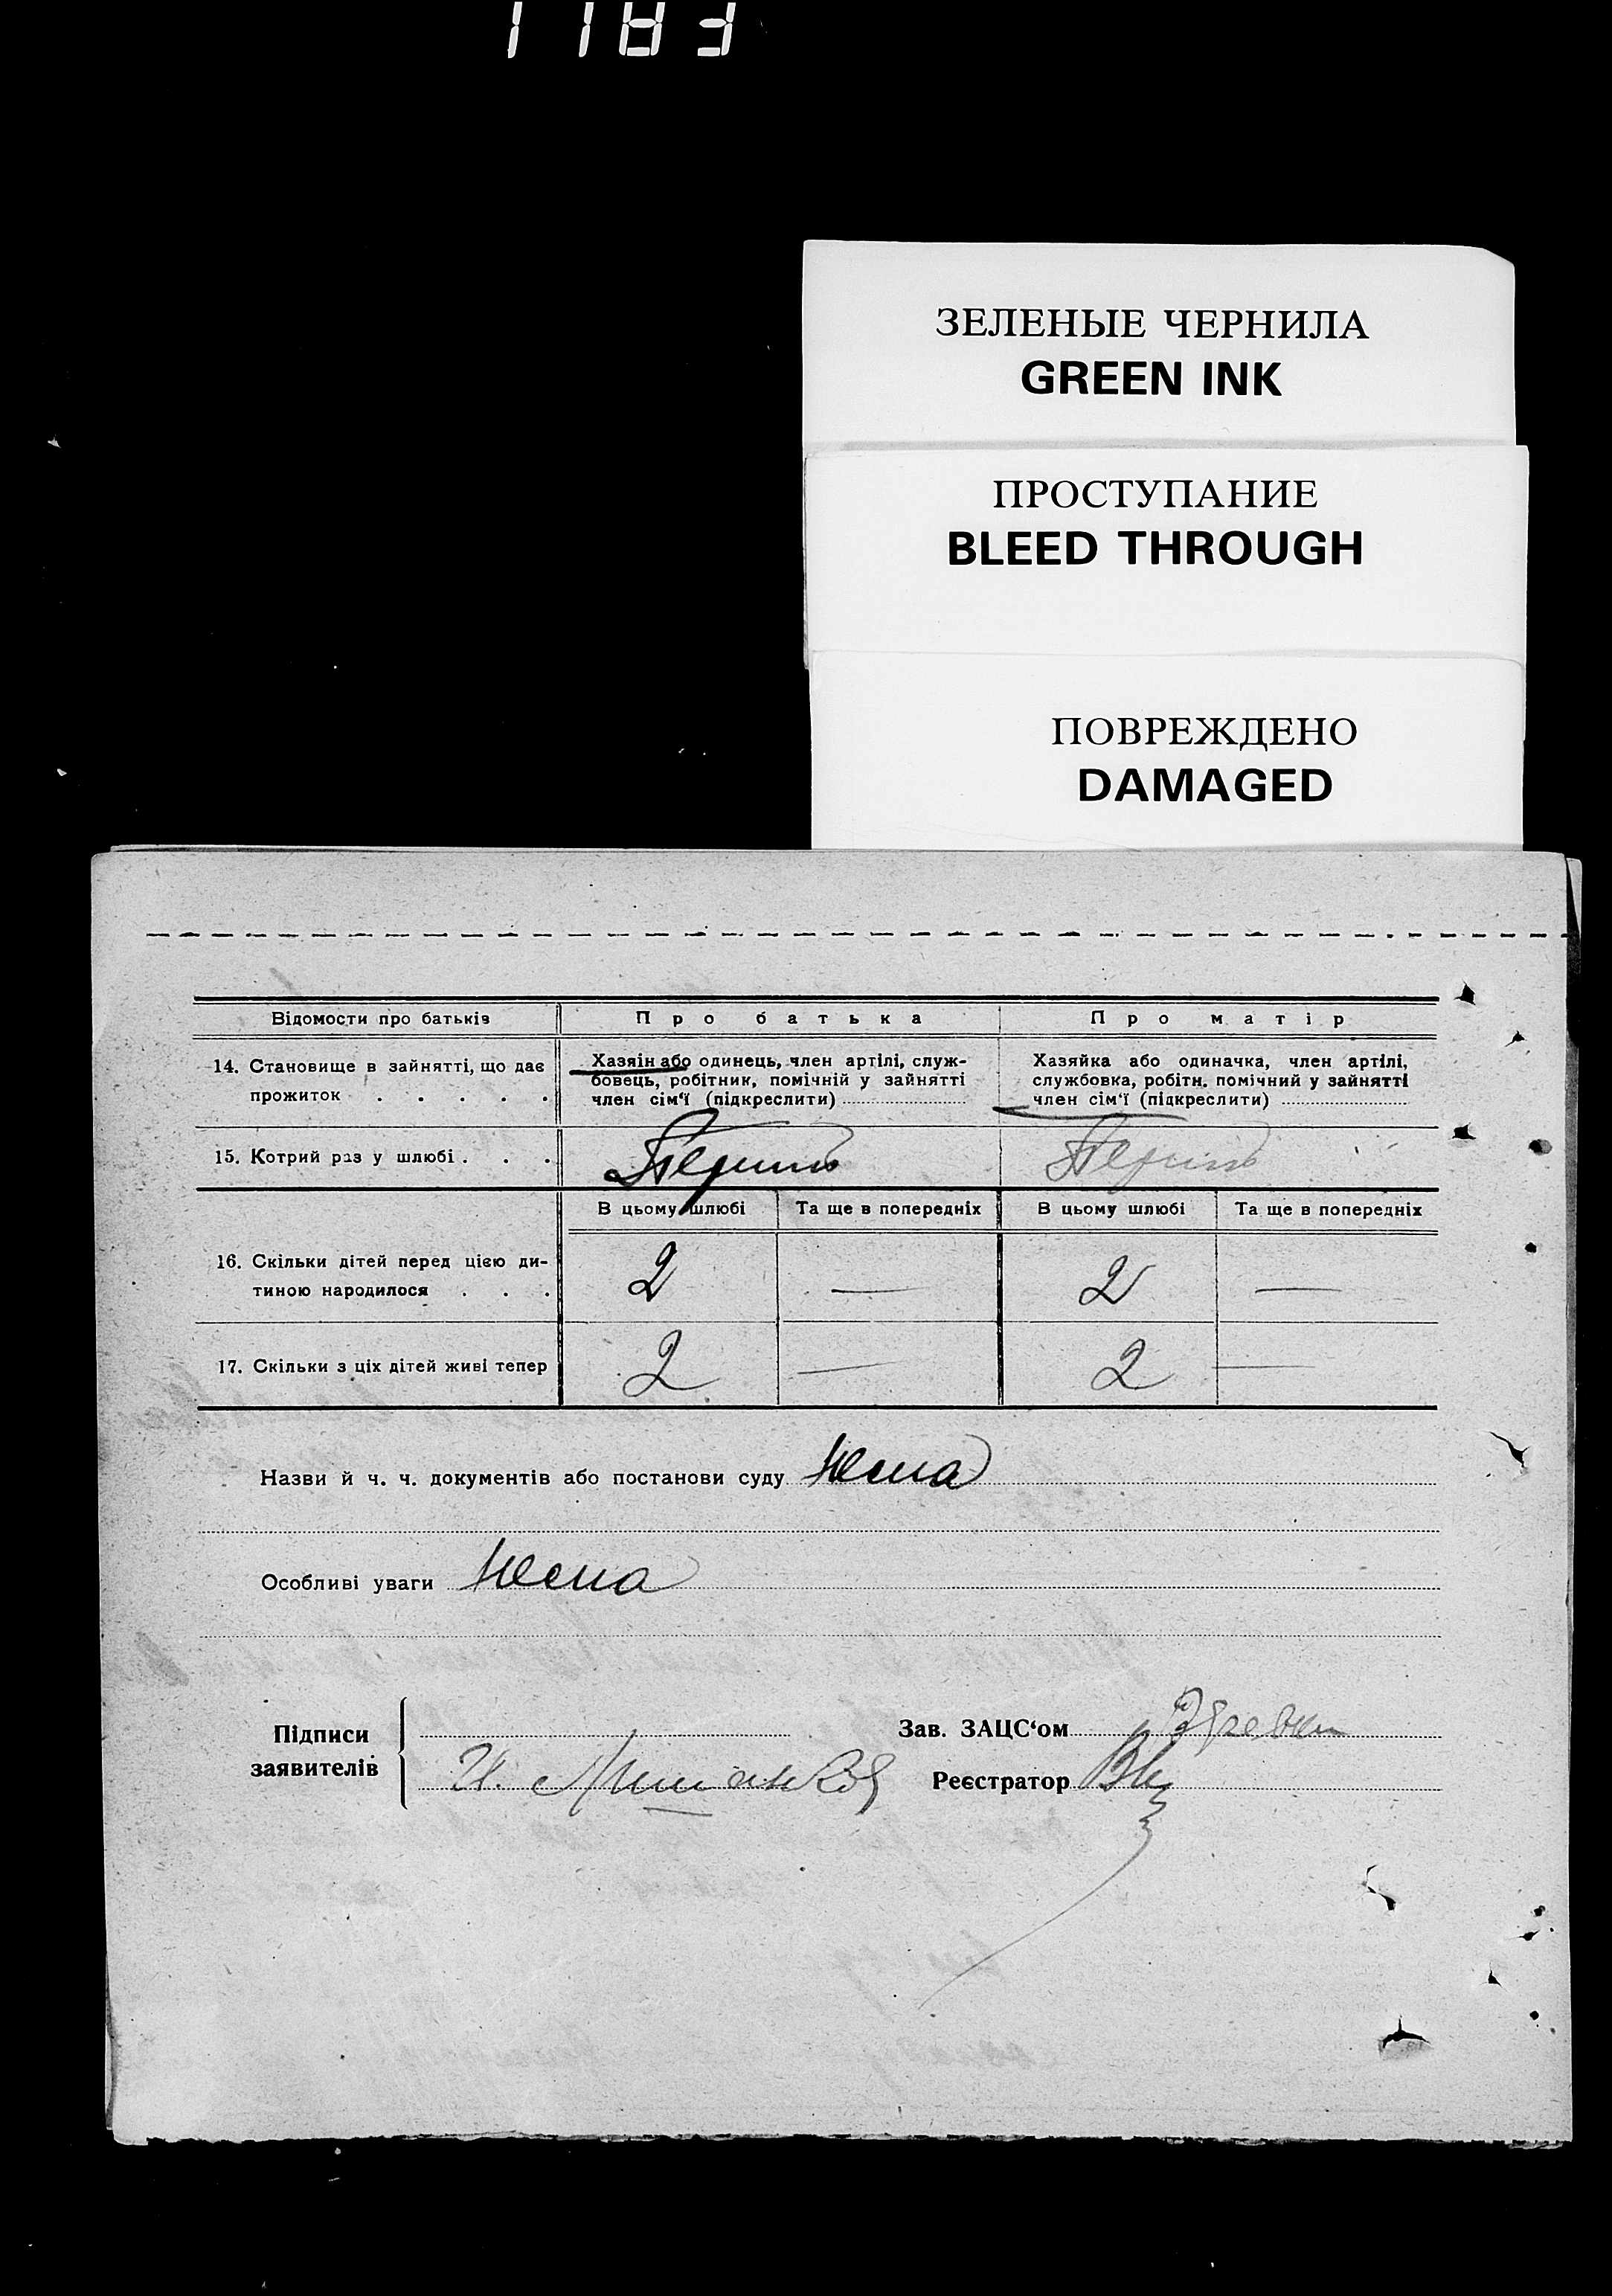 ЗЕЛЕНЫЕ ЧЕРНИЛА
GREEN INK
ПРОСТУПАНИЕ
BLEED THROUGH
ПОВРЕЖДЕНО
DAMAGED
Відомости про батьків
Про батька
Про матір
14. Становище в зайнятті, що дає
прожиток . . . . .
Хазяін або одинець, член артілі, служ-
бовець, робітник, помічній у зайнятті
член сім'ї (підкреслити)
Хазяйка або одиначка, член артілі,
службовка, робітн. помічний у зайнятті
член сім'ї (підкреслити)
15. Котрий раз у шлюбі . . .
Перший
Перший
В цьому шлюбі
Та ще в попередніх
В цьому шлюбі
Та ще в попередніх
16. Скільки дітей перед цією ди-
тиною народилося . . .
2
—
2
—
17. Скільки з ціх дітей живі тепер
2
—
2
—
Назви й ч. ч. документів або постанови суду Нема
Особливі уваги Нема
Підписи
заявителів
Зав. ЗАЦС'ом
Реєстратор